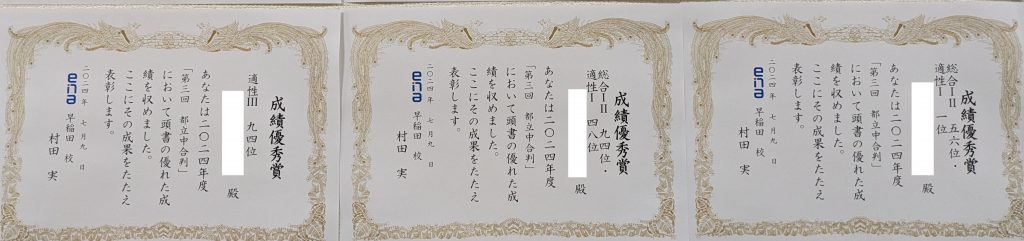 成績優秀賞
適性III　九四位
殿
あなたは二〇二四年度
「第三回　都立中合判」
において頭書の優れた成
績を収めました。
ここにその成果をたたえ
表彰します。
二〇二四年　七月九　日
ena　早稲田　校
村田　実
成績優秀賞
総合I II　九四位・
適性I　四八位
殿
あなたは二〇二四年度
「第三回　都立中合判」
において頭書の優れた成
績を収めました。
ここにその成果をたたえ
表彰します。
二〇二四年　七月九　日
ena　早稲田　校
村田　実
成績優秀賞
総合I II　五六位・
適性I　一位
殿
あなたは二〇二四年度
「第三回　都立中合判」
において頭書の優れた成
績を収めました。
ここにその成果をたたえ
表彰します。
二〇二四年　七月九　日
ena　早稲田　校
村田　実